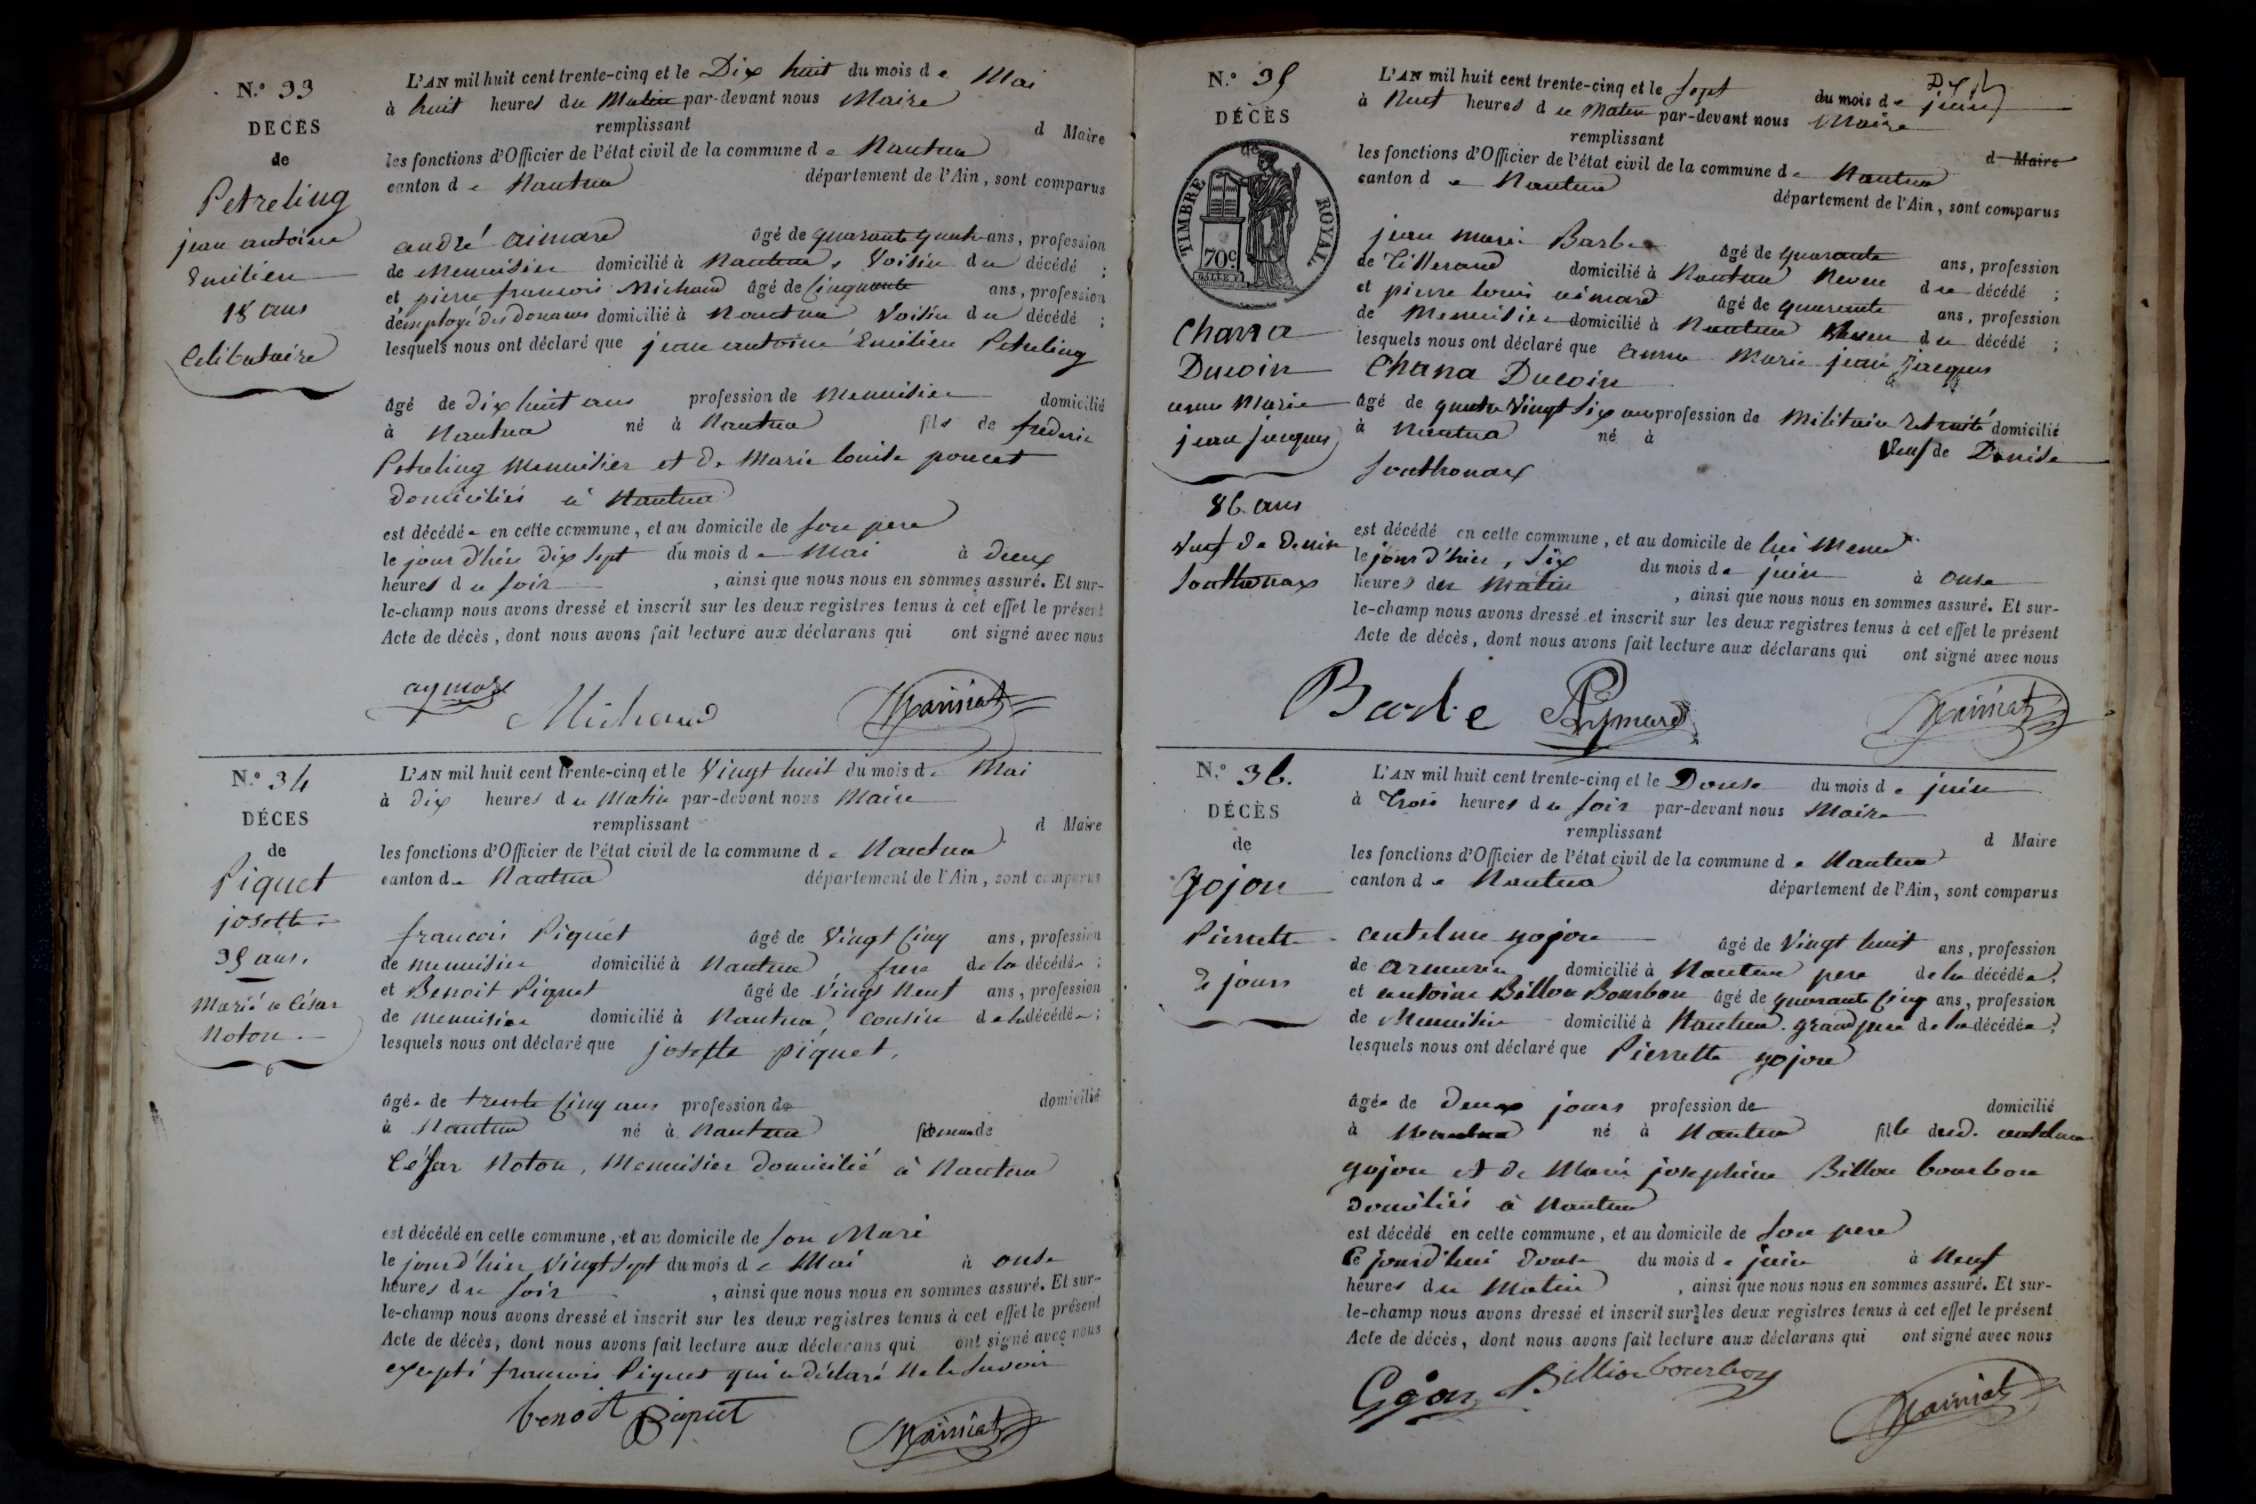 N.° 33
DÉCÈS
de
Petreling
jean antoine
Emilien
18 ans
Celibataire
L'AN mil huit cent trente-cinq et le Dix huit du mois de Mai
à huit heures du Matin par-devant nous Maire
remplissant d Maire
les fonctions d'Officier de l'état civil de la commune de Nantua
canton de Nantua département de l'Ain, sont comparus
andré aimard âgé de quarante quatre ans, profession
de Menuisier domicilié à Nantua, Voisin du décédé ;
et pierre francois Michaud âgé de Cinquante ans, profession
d'employé des Douanes domicilié à Nantua Voisin du décédé ;
lesquels nous ont déclaré que jean antoine Emilien Petreling
âgé de dix huit ans profession de Menuisier domicilié
à Nantua né à Nantua fils de frederic
Petreling Menuisier et de Marie louise poncet
domiciliés à Nantua
est décédé en cette commune, et au domicile de son pere
le jour d'hier dix sept du mois de Mai à deux
heures du soir , ainsi que nous nous en sommes assuré. Et sur-
le-champ nous avons dressé et inscrit sur les deux registres tenus à cet effet le présent
Acte de décès, dont nous avons fait lecture aux déclarans qui ont signé avec nous
aymard Michaud
N.° 34
DÉCÈS
de
Piquet
josette
35 ans,
Marié a César
Noton
L'AN mil huit cent trente-cinq et le Vingt huit du mois de Mai
à dix heures du Matin par-devant nous Maire
remplissant d Maire
les fonctions d'Officier de l'état civil de la commune de Nantua
canton de Nantua département de l'Ain, sont comparus
francois Piquet âgé de Vingt Cinq ans, profession
de menuisier domicilié à Nantua frere de la décédée ;
et Benoit Piquet âgé de Vingt Neuf ans, profession
de menuisier domicilié à Nantua, Cousin de la décédée ;
lesquels nous ont déclaré que josette piquet,
âgée de trente Cinq ans profession de domicilié
à Nantua né à Nantua femme de
César Noton, Menuisier domicilié à Nantua
est décédé en cette commune, et au domicile de son Mari
le jour d'hier Vingt sept du mois de Mai à onse
heures du soir , ainsi que nous nous en sommes assuré. Et sur-
le-champ nous avons dressé et inscrit sur les deux registres tenus à cet effet le présent
Acte de décès, dont nous avons fait lecture aux déclarans qui ont signé avec nous
excepté francois Piquet qui a déclaré ne le savoir
benoit Piquet
N.° 35
DÉCÈS
de
TIMBRE ROYAL
70c
Chana
Ducoin
anne Marie
jean jacques
86 ans
Veuf de denise
Sonthonax
L'AN mil huit cent trente-cinq et le Sept du mois de juin
à Neuf heures du Matin par-devant nous Maire
remplissant d Maire
les fonctions d'Officier de l'état civil de la commune de Nantua
canton de Nantua département de l'Ain, sont comparus
jean marie Barbe âgé de quarante ans, profession
de Tisserand domicilié à Nantua Neveu du décédé ;
et pierre louis aimard âgé de quarante ans, profession
de Menuisier domicilié à Nantua Neveu du décédé ;
lesquels nous ont déclaré que anne Marie jean jacques
Chana Ducoin
âgé de quatre Vingt Six ans profession de Militaire Retraité domicilié
à Nantua né à Veuf de Denise
Sonthonax
est décédé en cette commune, et au domicile de lui Meme
le jour d'hier, Six du mois de juin à onse
heures du Matin , ainsi que nous nous en sommes assuré. Et sur-
le-champ nous avons dressé et inscrit sur les deux registres tenus à cet effet le présent
Acte de décès, dont nous avons fait lecture aux déclarans qui ont signé avec nous
Barbe Aymard
N.° 36.
DÉCÈS
de
Gojon
Pierrette
2 jours
L'AN mil huit cent trente-cinq et le Douse du mois de juin
à Trois heures du soir par-devant nous Maire
remplissant d Maire
les fonctions d'Officier de l'état civil de la commune de Nantua
canton de Nantua département de l'Ain, sont comparus
antelme gojon âgé de Vingt huit ans, profession
de armurier domicilié à Nantua pere de la décédée ;
et antoine Billon Bourbon âgé de quarante Cinq ans, profession
de Menuisier domicilié à Nantua. grand pere de la décédée ;
lesquels nous ont déclaré que Pierrette gojon
âgée de deux jours profession de domicilié
à Nantua né à Nantua fille dud. antelme
gojon et de Marie josephine Billon bourbon
domiciliés à Nantua
est décédé en cette commune, et au domicile de son pere
Ce jourd'hui douse du mois de juin à Neuf
heures du Matin , ainsi que nous nous en sommes assuré. Et sur-
le-champ nous avons dressé et inscrit sur les deux registres tenus à cet effet le présent
Acte de décès, dont nous avons fait lecture aux déclarans qui ont signé avec nous
Gojon Billion bourbon